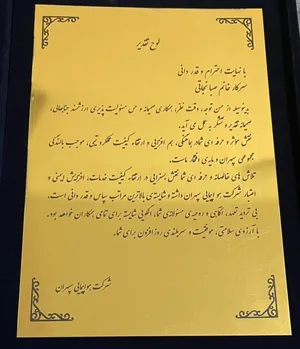 لوح تقدیر
با نهایت احترام و قدردانی
سرکار خانم صبا نجاتی
بدینوسیله از حسن توجه، دقت نظر، همکاری صمیمانه و حس مسئولیت پذیری ارزشمند جنابعالی،
صمیمانه تقدیر و تشکر به عمل می آید.
نقش مؤثر و حرفه ای شما در هماهنگی، هم افزایی و ارتقاء کیفیت عملکرد تیمی، موجب بالندگی
مجموعه سپهران و مایه ی افتخار ماست.
تلاش های خالصانه و حرفه ای شما نقش بسزایی در ارتقاء کیفیت خدمات، افزایش ایمنی و
اعتبار شرکت هواپیمایی سپهران داشته و شایسته ی بالاترین مراتب سپاس و قدردانی است.
بی تردید تعهد، آگاهی و روحیه ی مسئولانه ی شما، الگویی شایسته برای تمامی همکاران خواهد بود.
با آرزوی سلامتی، موفقیت و سربلندی روزافزون برای شما.
شرکت هواپیمایی سپهران